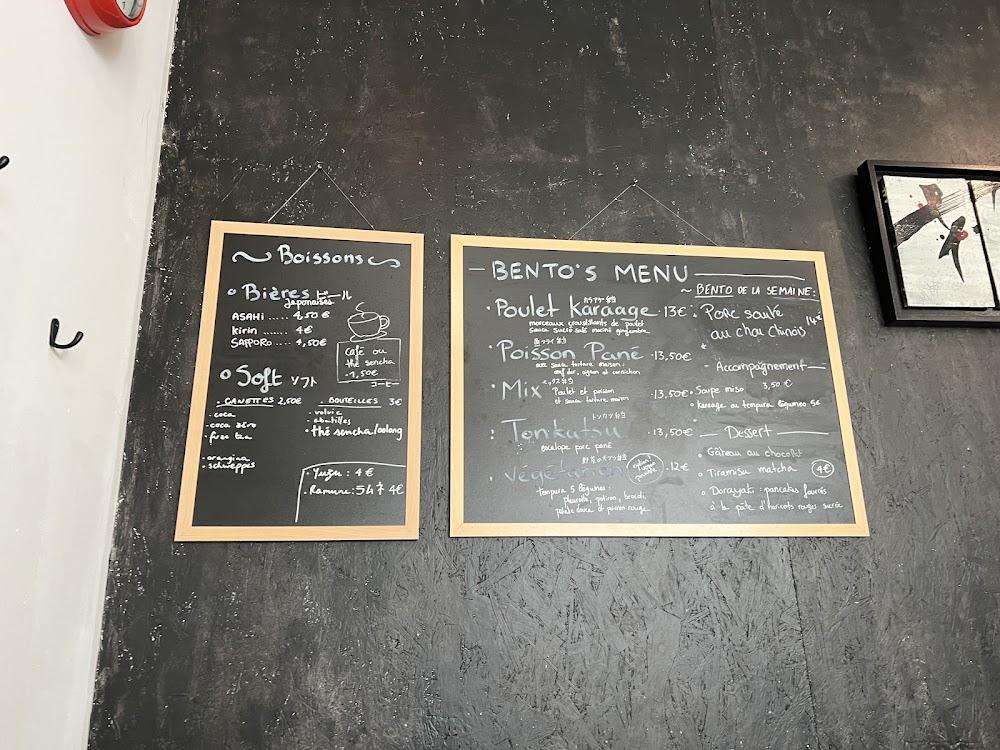 Boissons
Bières ビール
Japonaises
ASAHI ...... 4,50 €
Kirin ...... 4€
SAPPORO .... 4,50€
café ou
thé sencha
1,50€
コーヒー
Soft ソフト
CANETTES 2,50€
- coca
- coca zéro
- fuze tea
- orangina
- schweppes
BOUTEILLES 3€
- volvic
- abatilles
• thé sencha/oolong
Yuzu : 4€
- Ramune: ラムネ 4€
BENTO'S MENU
カラアゲ弁当
• Poulet Karaage • 13€
morceaux croustillants de poulet
sauce sucré salé mariné gingembre
魚フライ弁当
• Poisson Pané • 13,50€
avec sauce tartare maison :
œuf dur, oignon et cornichon
ミックス弁当
• Mix Poulet et poisson
et sauce tartare maison • 13,50€
トンカツ弁当
Tonkatsu • 13,50€
escalope porc pané
Végétarien • 12€
tempura 5 légumes :
pleurote, potiron, brocoli,
patate douce et poivron rouge
~ BENTO DE LA SEMAINE:
Porc sauté
au chou chinois 14€
Accompagnement
• Soupe miso 3,50 €
• Karaage ou tempura légumes 5€
Dessert
• Gâteau au chocolat
• Tiramisu matcha 4€
• Dorayaki : pancakes fourrés
à la pâte d'haricots rouges sucrée